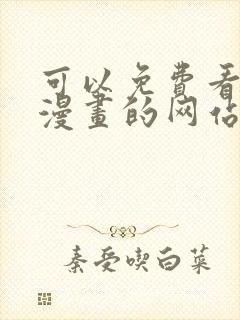 可以免费看
漫畫的网站
秦受喫白菜